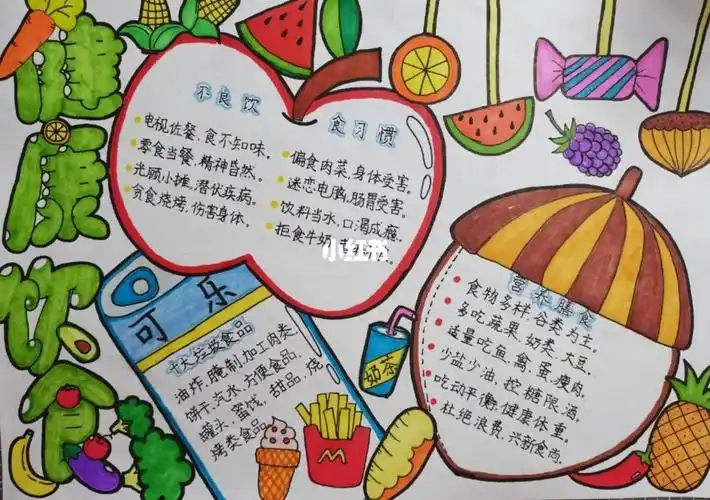 健康饮食
不良饮
食习惯
电视佐餐,食不知味。
零食当餐,精神昏然。
光顾小摊,潜伏疾病。
贪食烧烤,伤害身体。
偏食肉菜,身体受害。
迷恋电脑,肠胃受害。
饮料当水,口渴成瘾。
拒食牛奶,
小红书
可乐
十大垃圾食品
油炸,腌制,加工肉类,
饼干,汽水,方便食品,
罐头,蜜饯,甜品,烧
烤类食品
奶茶
营养膳食
食物多样,谷类为主。
多吃蔬果、奶类、大豆。
适量吃鱼,禽,蛋,瘦肉。
少盐少油,控糖限酒。
吃动平衡,健康体重。
杜绝浪费,兴新食尚。